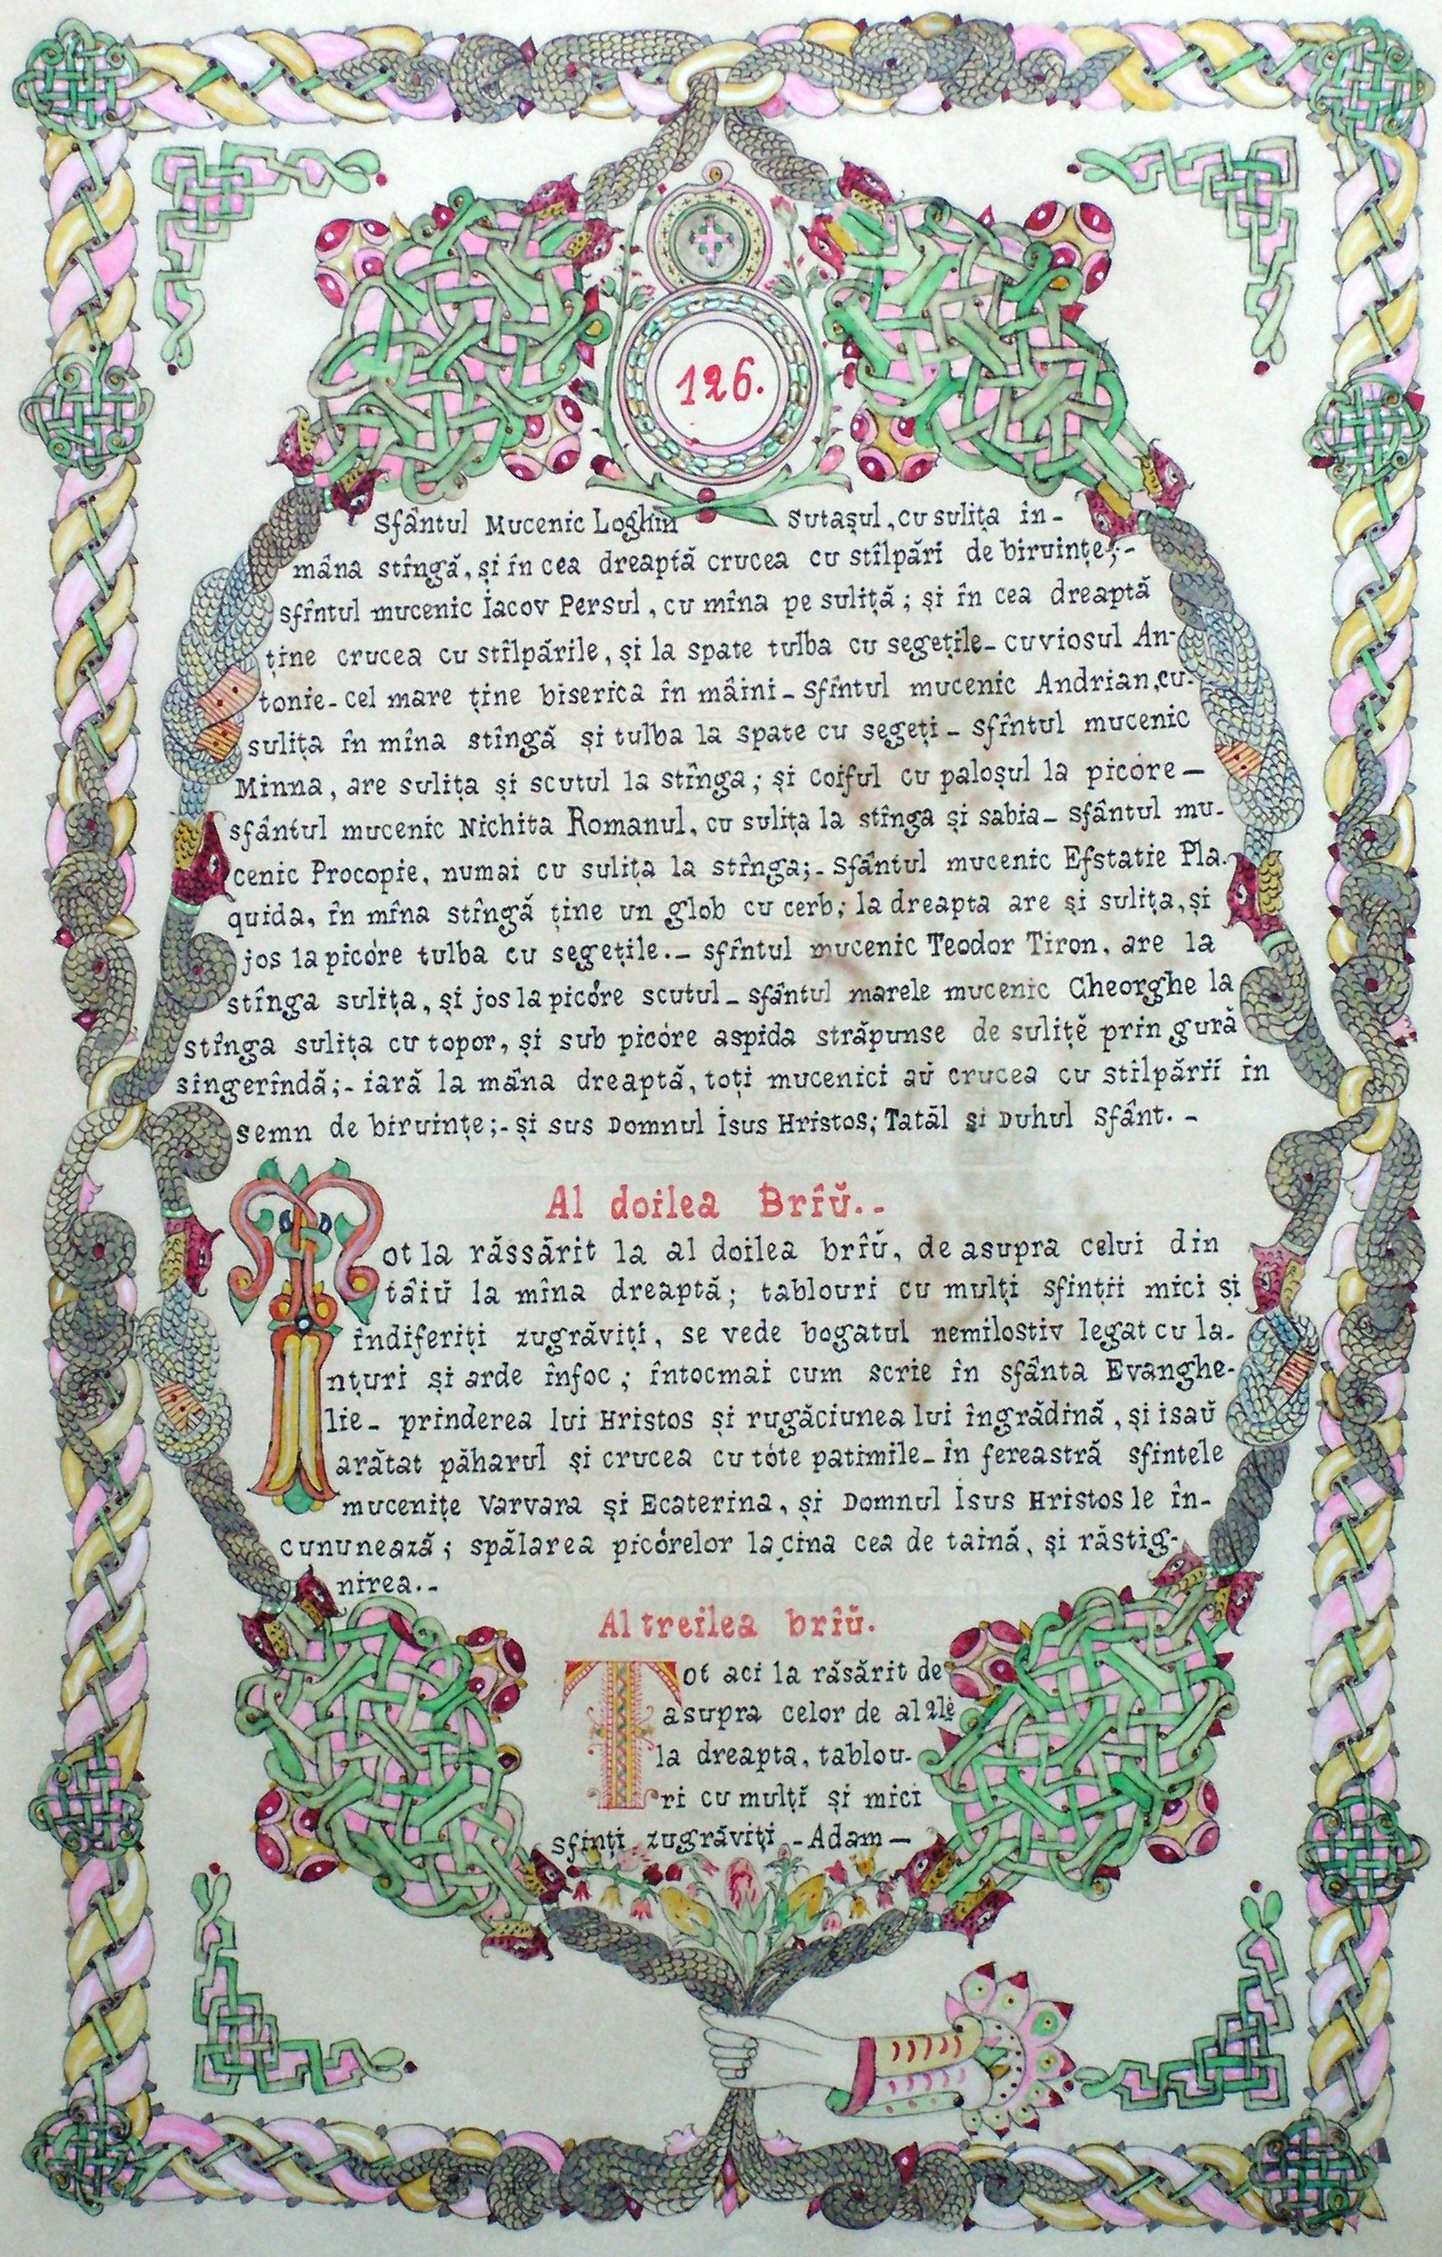 126.
Sfântul Mucenic Loghin Sutaşul, cu suliţa în-
mâna stîngă, şi în cea dreaptă crucea cu stîlpări de biruinţe;-
sfîntul mucenic Iacov Persul, cu mîna pe suliţă; şi în cea dreaptă
ţine crucea cu stîlpările, şi la spate tulba cu segeţile- cuviosul An-
tonie- cel mare ţine biserica în mâini- sfîntul mucenic Andrian, cu-
suliţa în mîna stîngă şi tulba la spate cu segeţi- sfîntul mucenic
Minna, are suliţa şi scutul la stînga; şi coiful cu paloşul la picóre-
sfântul mucenic Nichita Romanul, cu suliţa la stînga şi sabia- sfântul mu-
cenic Procopie, numai cu suliţa la stînga;- sfântul mucenic Efstatie Pla-
quida, în mîna stîngă ţine un glob cu cerb; la dreapta are şi suliţa, şi
jos la picóre tulba cu segeţile.- sfîntul mucenic Teodor Tiron, are la
stînga suliţa, şi jos la picóre scutul- sfântul marele mucenic Gheorghe la
stînga suliţa cu topor, şi sub picóre aspida străpunse de suliţĕ prin gură
sîngerîndă;- iară la mâna dreaptă, toţi mucenici aŭ crucea cu stîlpării în
semn de biruinţe;- şi sus Domnul Isus Hristos; Tatăl şi Duhul Sfânt.-
Al doilea Brîŭ.-
Tot la răssărit la al doilea brîŭ, de asupra celui din
tâiŭ la mîna dreaptă; tablouri cu mulţi sfinţii mici şi
indiferiţi zugrăviţi, se vede bogatul nemilostiv legat cu la-
nţuri şi arde înfoc; întocmai cum scrie în sfânta Evanghe-
lie- prinderea lui Hristos şi rugăciunea lui îngrădină, şi isaŭ
arătat păharul şi crucea cu tóte patimile- în fereastră sfintele
muceniţe Varvara şi Ecaterina, şi Domnul Isus Hristos le în-
cununează; spălarea picórelor la cina cea de taină, şi răstig-
nirea.-
Al treilea brîŭ.
Tot aci la răsărit de
asupra celor de al 2le
la dreapta, tablou-
ri cu mulţi şi mici
sfinţi zugrăviţi.- Adam-